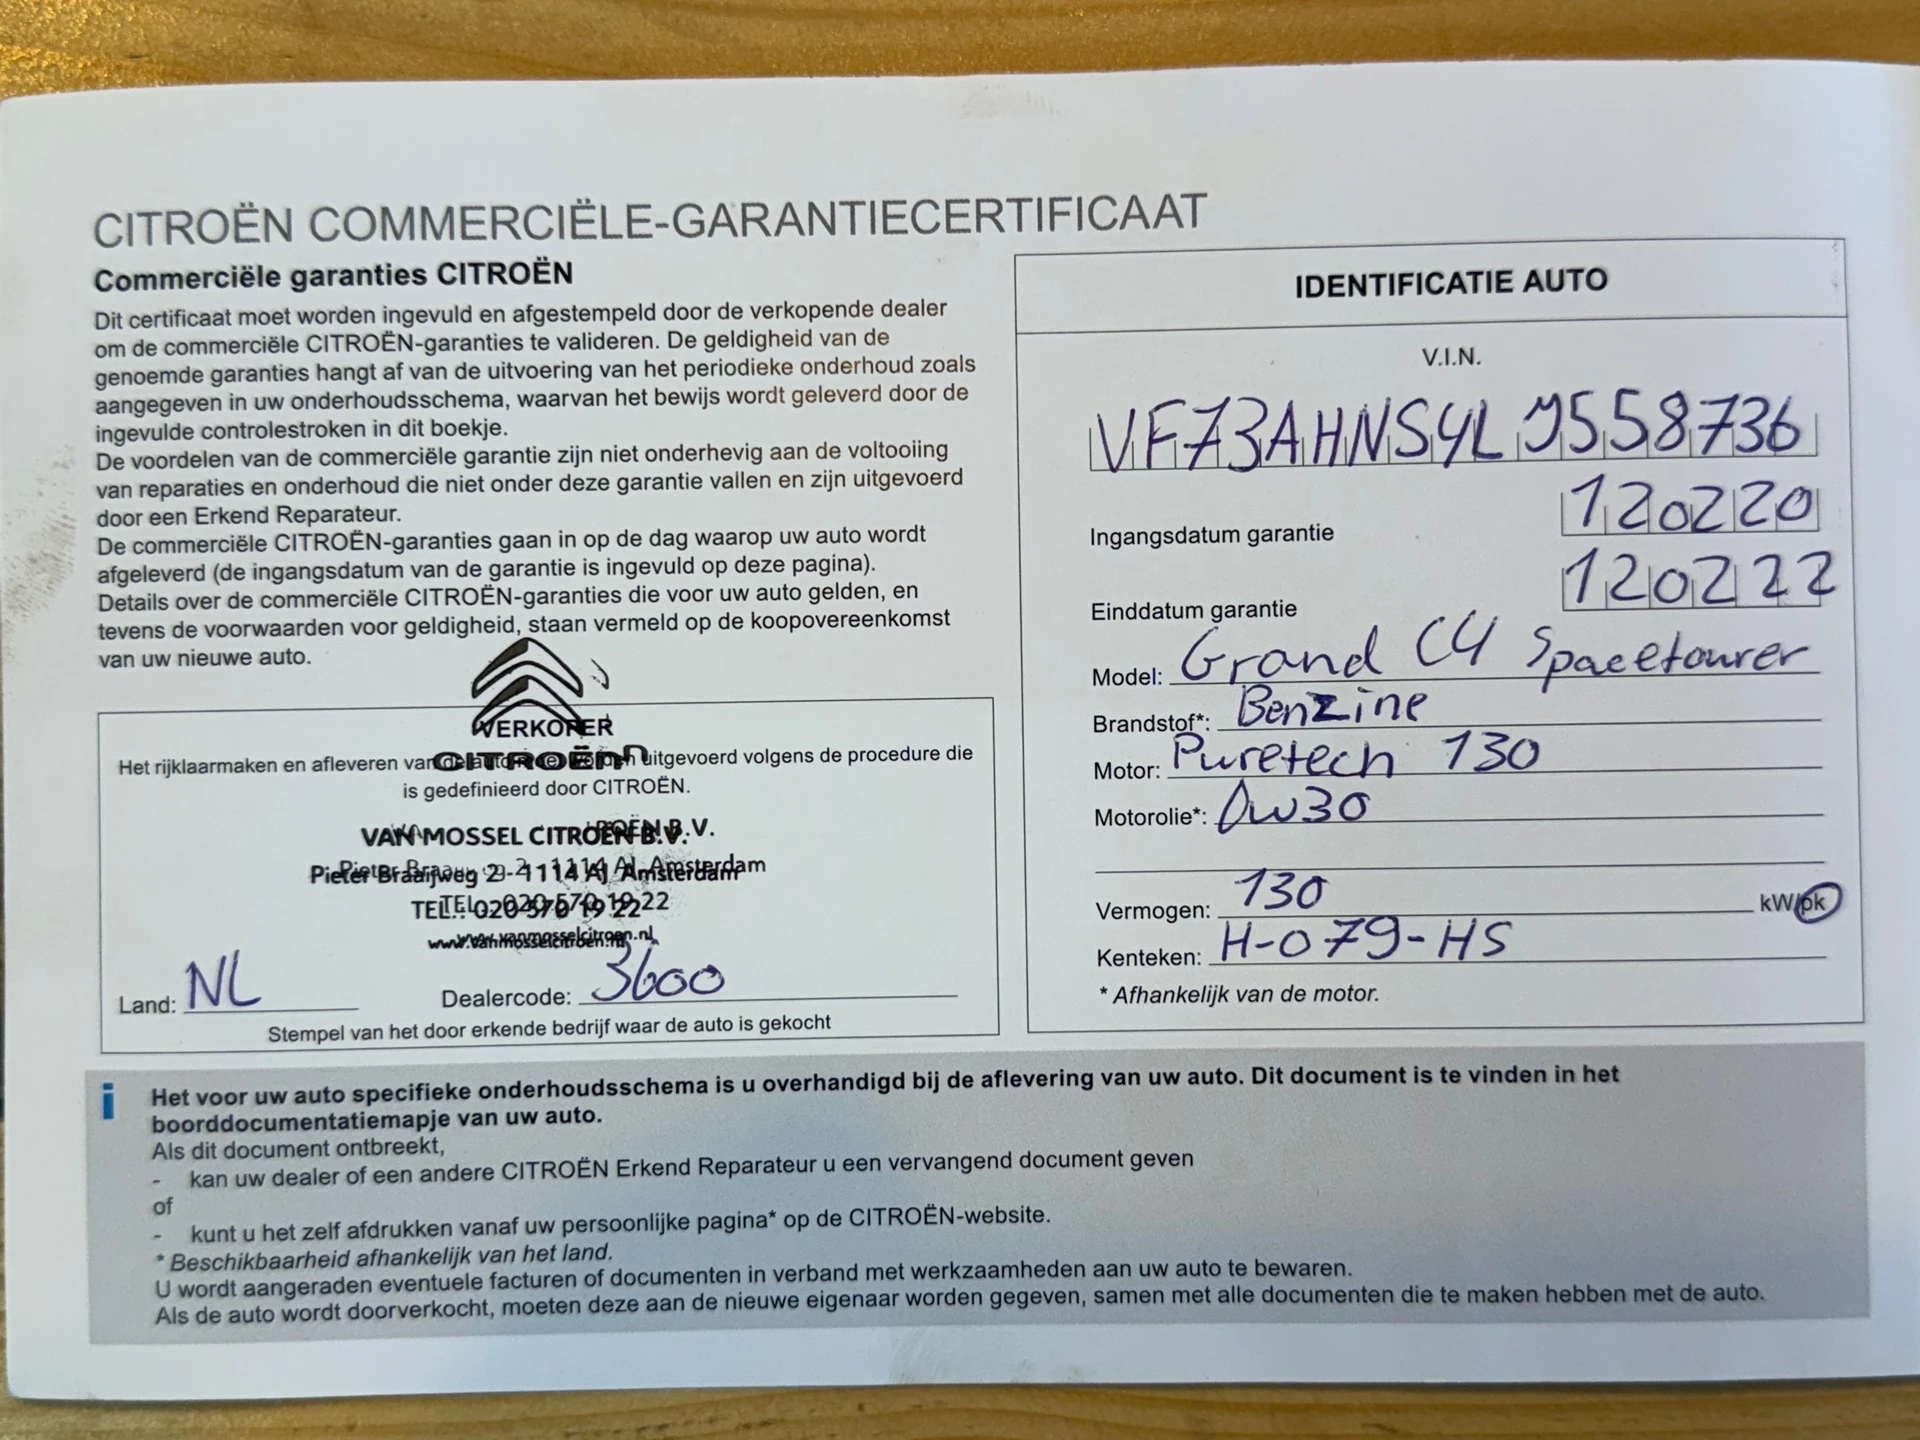 CITROËN COMMERCIËLE-GARANTIECERTIFICAAT
Commerciële garanties CITROËN
Dit certificaat moet worden ingevuld en afgestempeld door de verkopende dealer
om de commerciële CITROËN-garanties te valideren. De geldigheid van de
genoemde garanties hangt af van de uitvoering van het periodieke onderhoud zoals
aangegeven in uw onderhoudsschema, waarvan het bewijs wordt geleverd door de
ingevulde controlestroken in dit boekje.
De voordelen van de commerciële garantie zijn niet onderhevig aan de voltooiing
van reparaties en onderhoud die niet onder deze garantie vallen en zijn uitgevoerd
door een Erkend Reparateur.
De commerciële CITROËN-garanties gaan in op de dag waarop uw auto wordt
afgeleverd (de ingangsdatum van de garantie is ingevuld op deze pagina).
Details over de commerciële CITROËN-garanties die voor uw auto gelden, en
tevens de voorwaarden voor geldigheid, staan vermeld op de koopovereenkomst
van uw nieuwe auto.
VERKOPER
CITROËN
Het rijklaarmaken en afleveren van de auto uitgevoerd volgens de procedure die
is gedefinieerd door CITROËN.
VAN MOSSEL CITROËN B.V.
Pieter Braaijweg 2 - 1114 AJ Amsterdam
TEL.: 020-570 19 22
www.vanmosselcitroen.nl
Land: NL Dealercode: 3600
Stempel van het door erkende bedrijf waar de auto is gekocht
IDENTIFICATIE AUTO
V.I.N.
VF73AHNSYLJ558736
Ingangsdatum garantie 120220
Einddatum garantie 120222
Model: Grand C4 Spacetourer
Brandstof*: Benzine
Motor: Puretech 130
Motorolie*: 0w30
Vermogen: 130 kW/pk
Kenteken: H-079-HS
* Afhankelijk van de motor.
i Het voor uw auto specifieke onderhoudsschema is u overhandigd bij de aflevering van uw auto. Dit document is te vinden in het
boorddocumentatiemapje van uw auto.
Als dit document ontbreekt,
- kan uw dealer of een andere CITROËN Erkend Reparateur u een vervangend document geven
of
- kunt u het zelf afdrukken vanaf uw persoonlijke pagina* op de CITROËN-website.
* Beschikbaarheid afhankelijk van het land.
U wordt aangeraden eventuele facturen of documenten in verband met werkzaamheden aan uw auto te bewaren.
Als de auto wordt doorverkocht, moeten deze aan de nieuwe eigenaar worden gegeven, samen met alle documenten die te maken hebben met de auto.